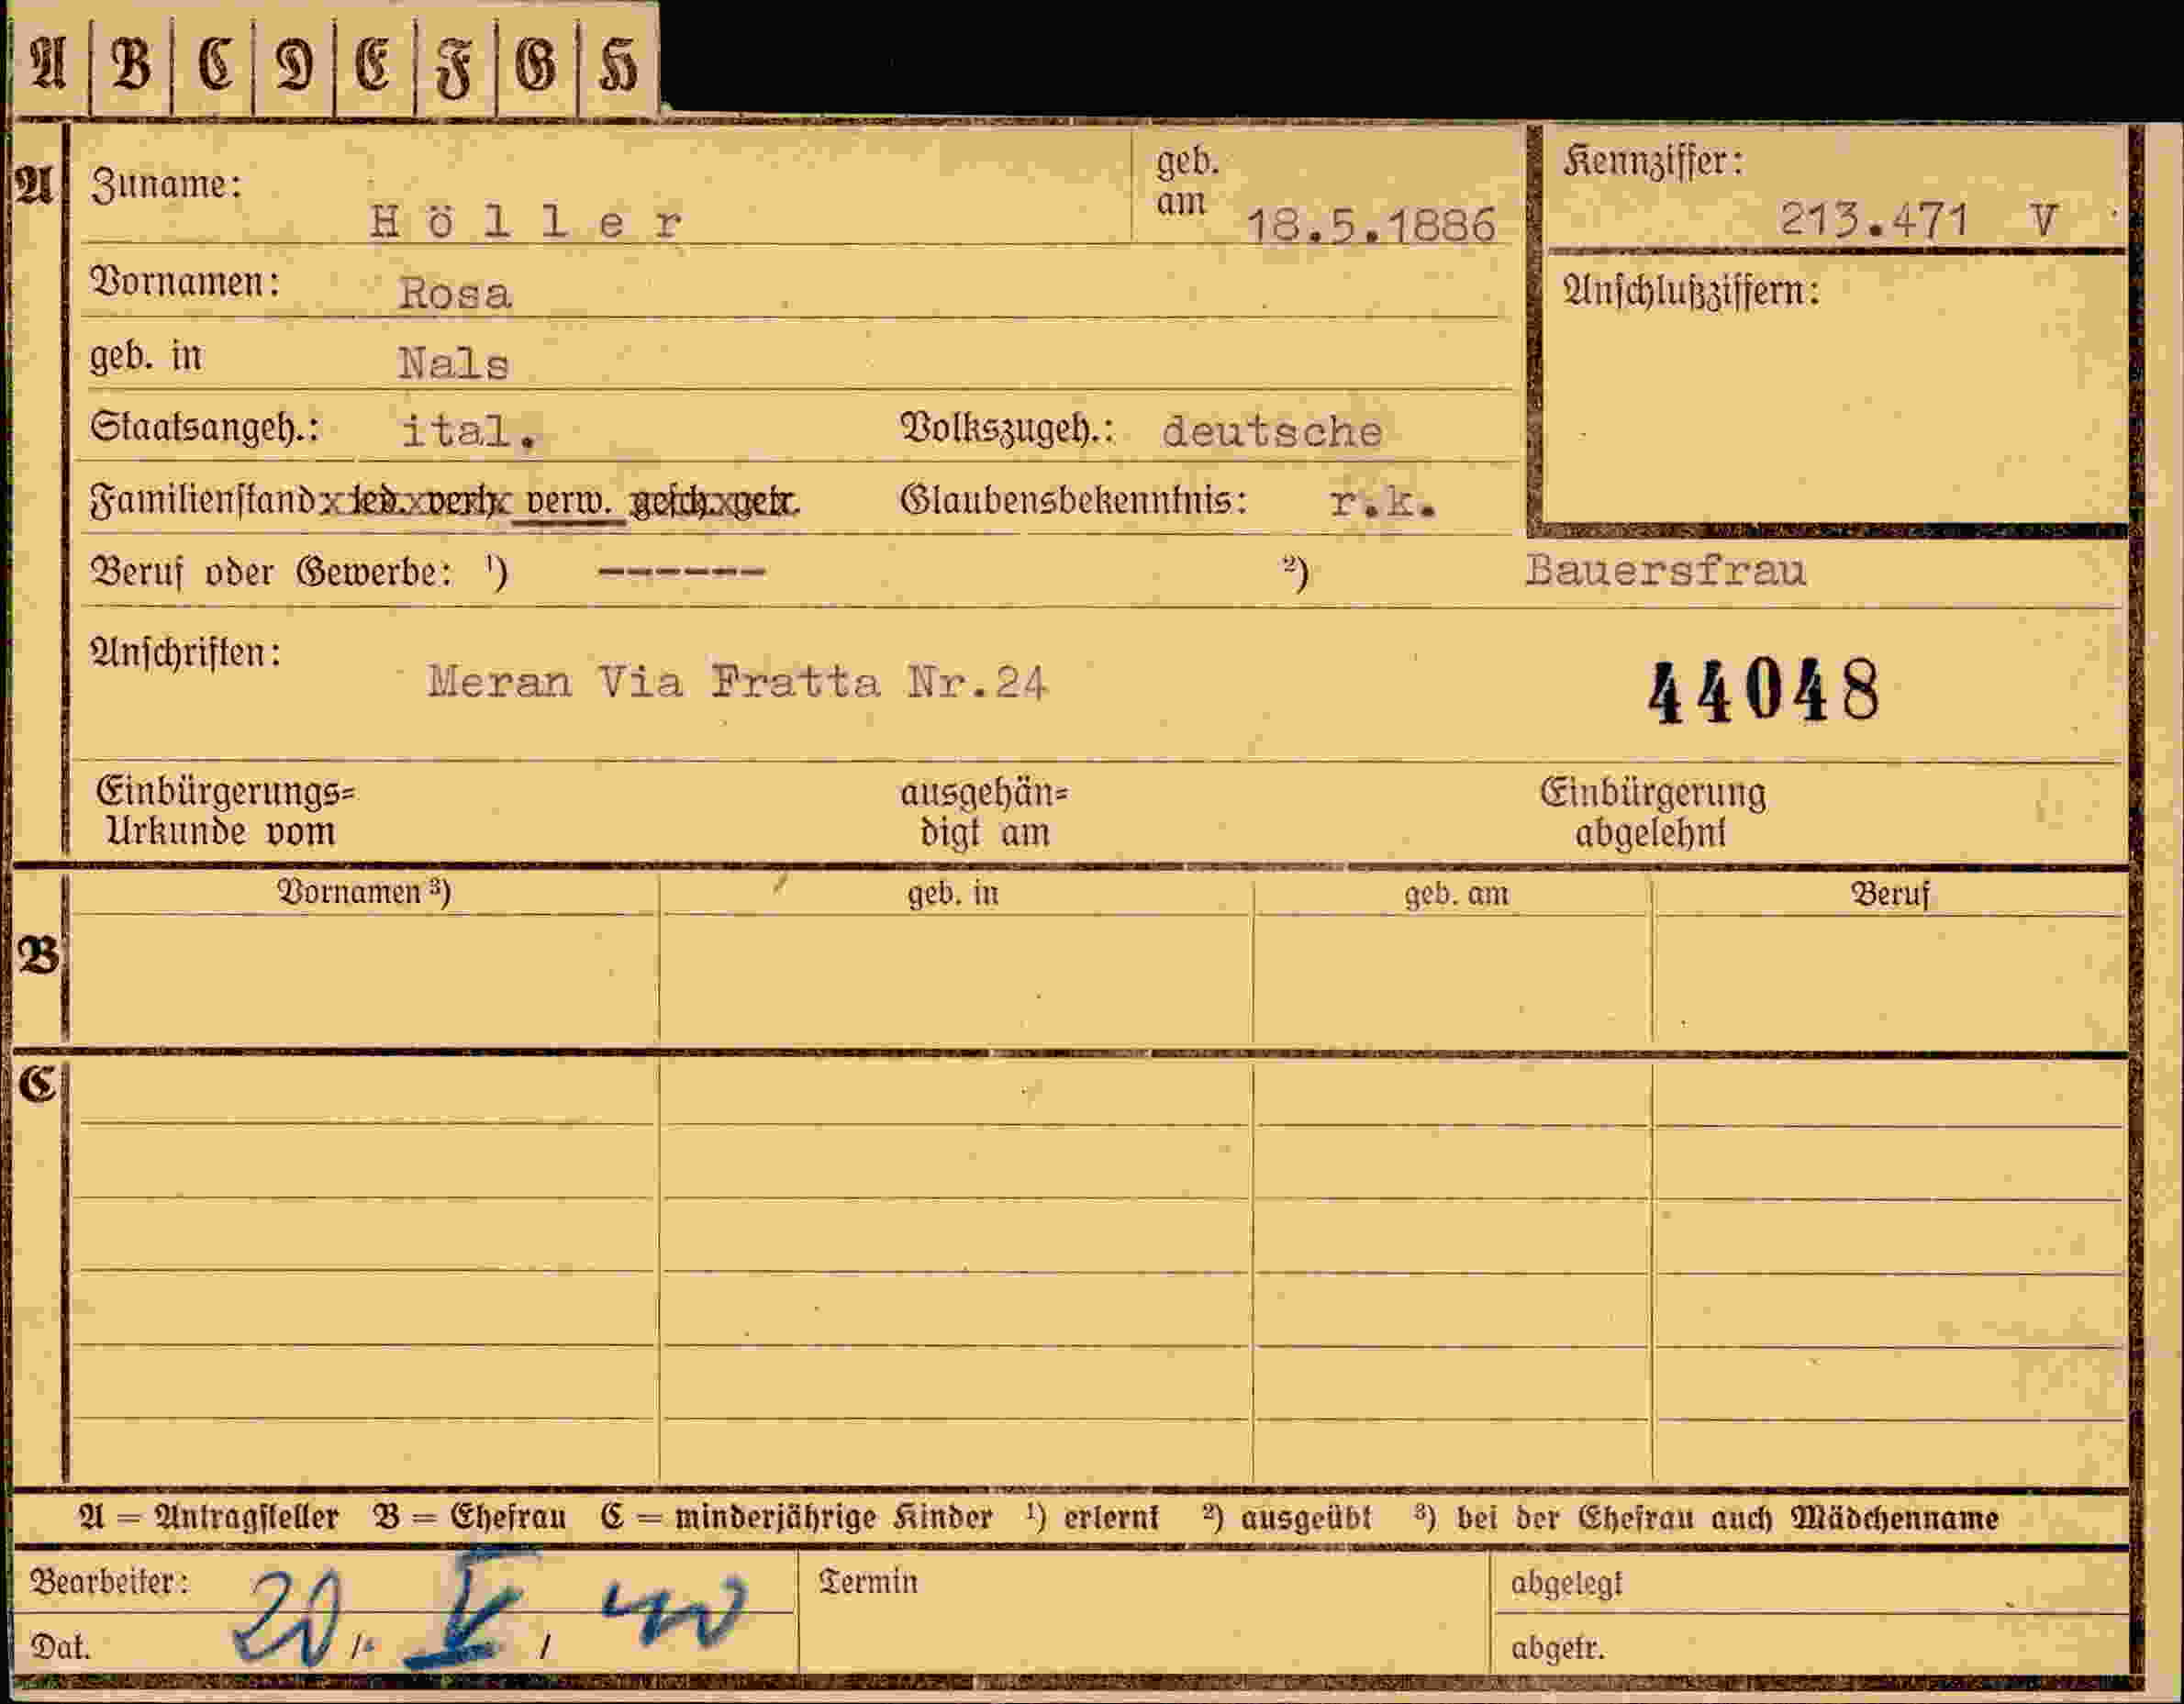 A B C D E F G H
A Zuname: Höller geb. am 18.5.1886 Kennziffer: 213.471 V
Vornamen: Rosa Anschlußziffern:
geb. in Nals
Staatsangeh.: ital. Volkszugeh.: deutsche
Familienstand x led. x verh. x verw. gesch. x getr. Glaubensbekenntnis: r.k.
Beruf oder Gewerbe: ¹) ------ ²) Bauersfrau
Anschriften: Meran Via Fratta Nr.24 44048
Einbürgerungs= ausgehän= Einbürgerung
Urkunde vom digt am abgelehnt
Vornamen ³) geb. in geb. am Beruf
B
C
A = Antragsteller B = Ehefrau C = minderjährige Kinder ¹) erlernt ²) ausgeübt ³) bei der Ehefrau auch Mädchenname
Bearbeiter: Termin abgelegt
Dat. 20/. V / 40 abgetr.